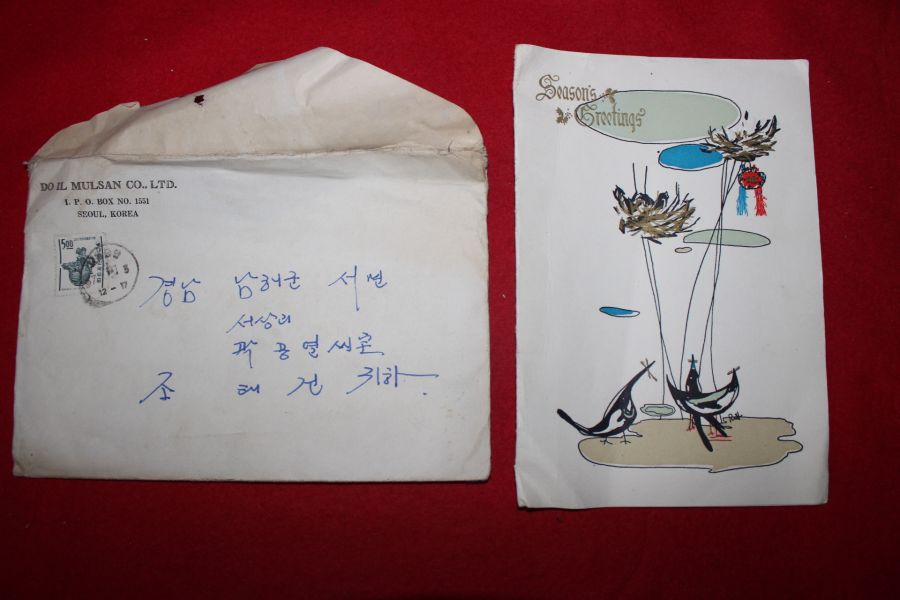 DO IL MULSAN CO., LTD.
I. P. O. BOX NO. 1551
SEOUL, KOREA
5.00
12-17
경남 남해군 서면
서상리
곽 공열 씨
조 태 건 귀하
Season's
Greetings